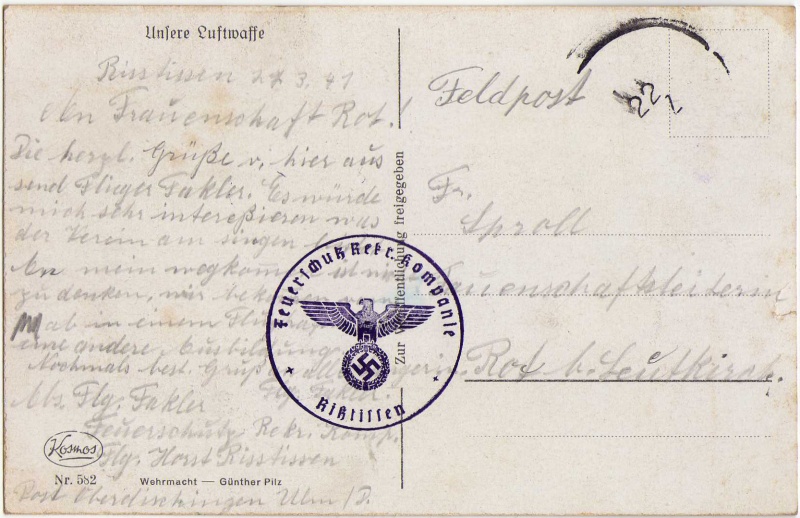 Unsere Luftwaffe
Risstissen 27 3. 41
Frauenschaft Rot!
Die herzl. Grüße v. hier aus
send Flieger Fakler. Es würde
mich sehr intereßieren was
der Verein am singen
An mein wegkommen ist
zu denken, wir
ab in einem
eine andere Ausbildung
Nochmals best. Grüße
Flg. Fakler.
Abs. Flg. Fakler
Feuerschutz Rekr. Komp.
Flg. Horst Risstissen
Post Oberdischingen Ulm / D.
Kosmos
Nr. 582
Wehrmacht — Günther Pilz
Zur Veröffentlichung freigegeben
Feuerschutz Rekr. Kompanie
+ Rißtissen +
Feldpost
22
1
Fr.
Sproll
Frauenschaftsleiterin
Rot b. Leutkirch.